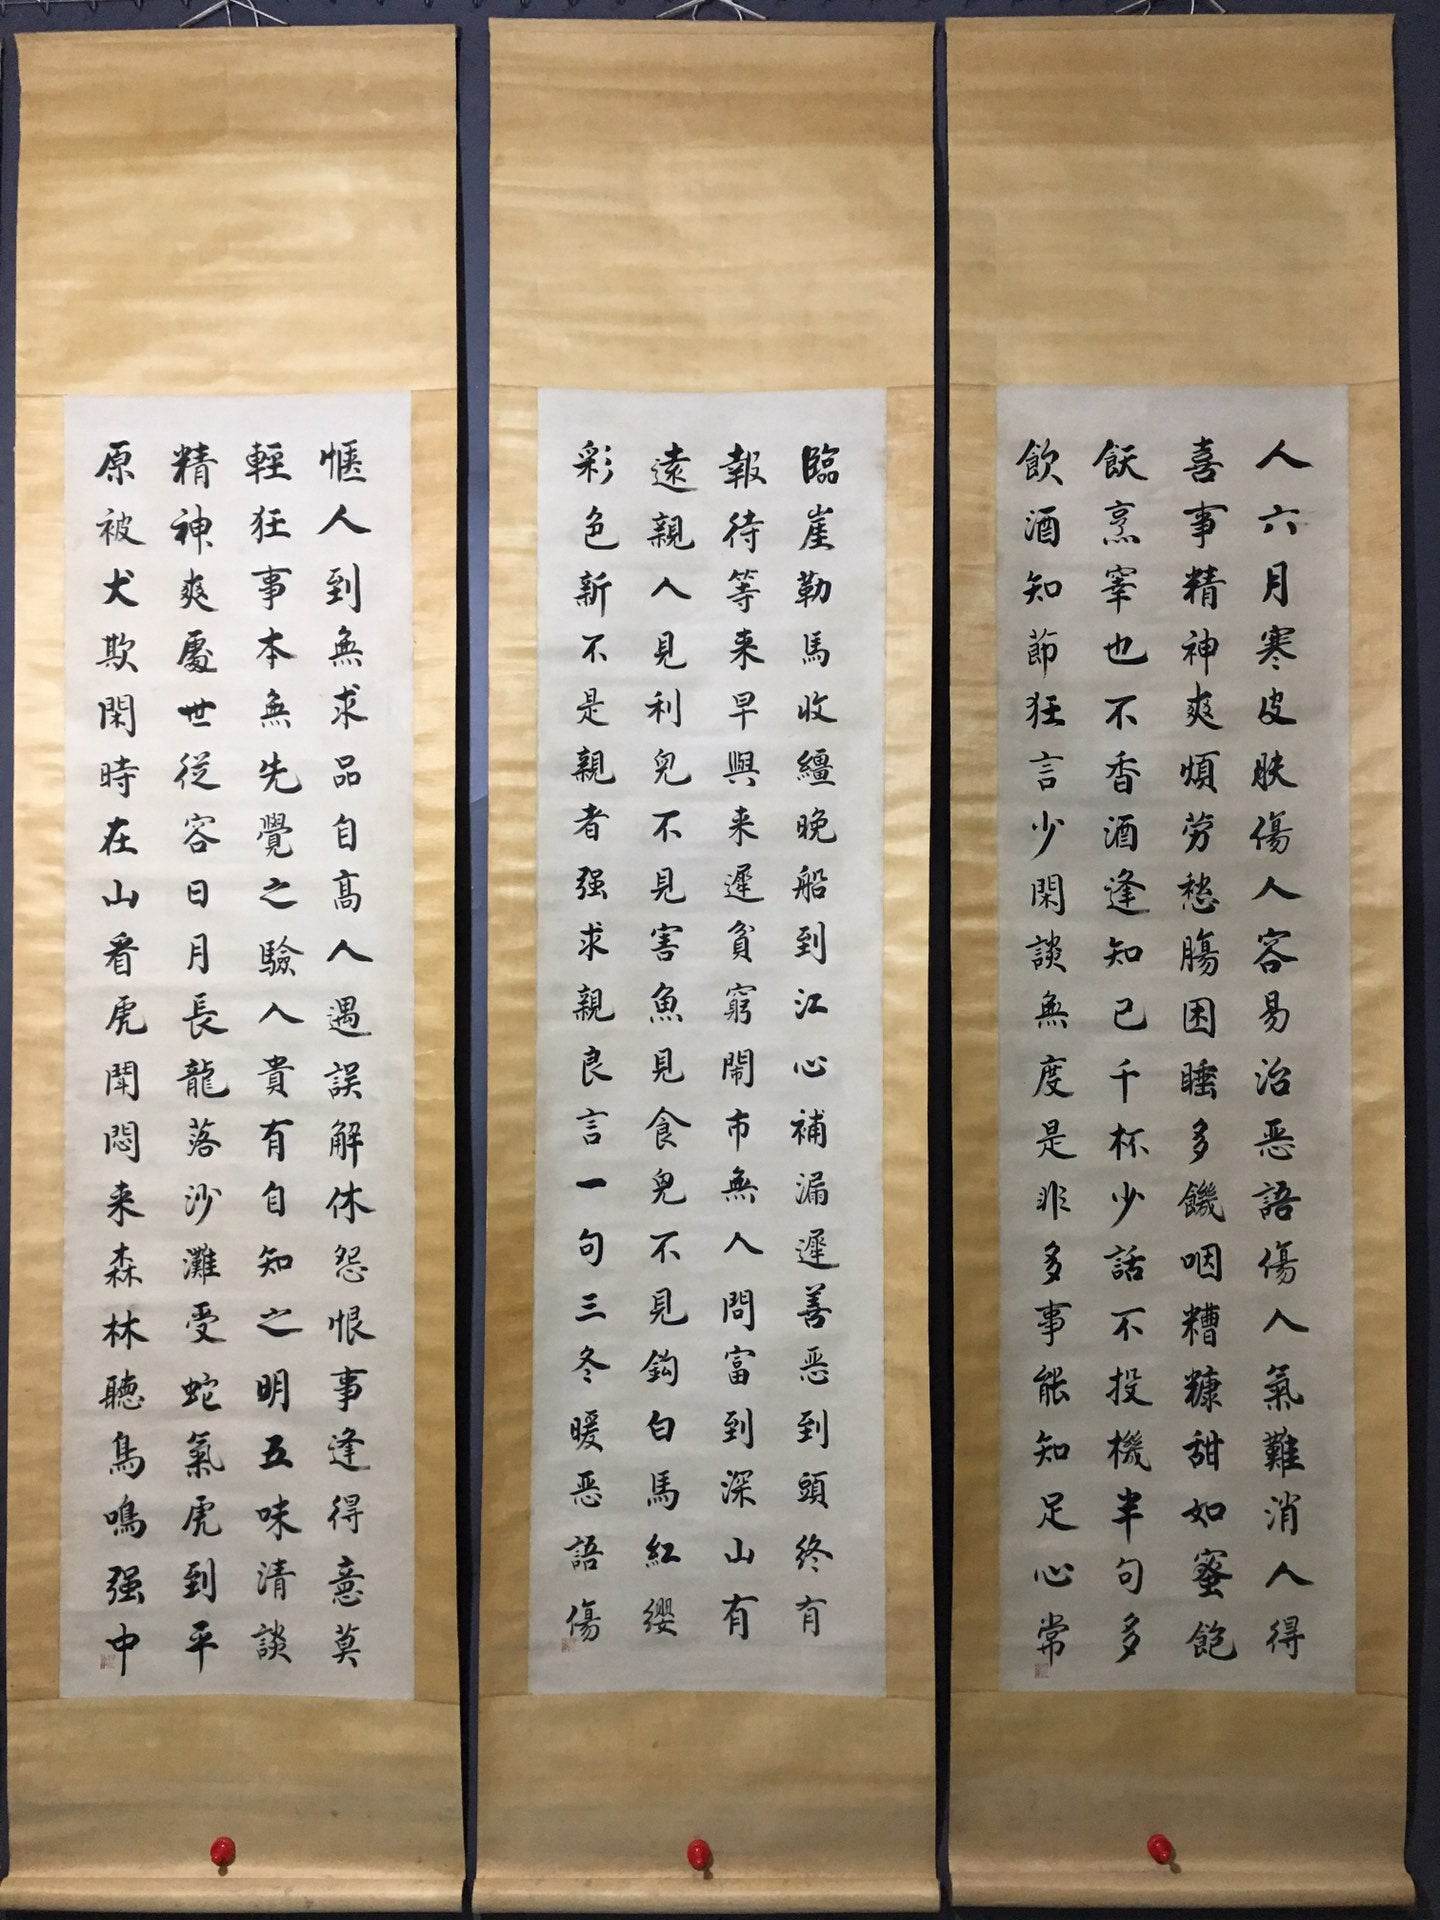 臨崖勒馬收繮晚船到江心補漏遲善恶到頭終有
報待等来早與来遲貧窮鬧市無人問富到深山有
遠親人見利兒不見害魚見食兒不見鈎白馬紅纓
彩色新不是親者强求親良言一句三冬暖恶語傷
人六月寒皮肤傷人容易治恶語傷人氣難消人得
喜事精神爽煩劳愁腸困睡多饑咽糟糠甜如蜜飽
飫烹宰也不香酒逢知已千杯少話不投機半句多
飲酒知節狂言少閑談無度是非多事能知足心常
愜人到無求品自高人遇誤解休怨恨事逢得意莫
輕狂事本無先覺之驗人貴有自知之明五味清談
精神爽處世從容日月長龍落沙灘受蛇氣虎到平
原被犬欺閑時在山看虎鬥悶来森林聽鳥鳴强中